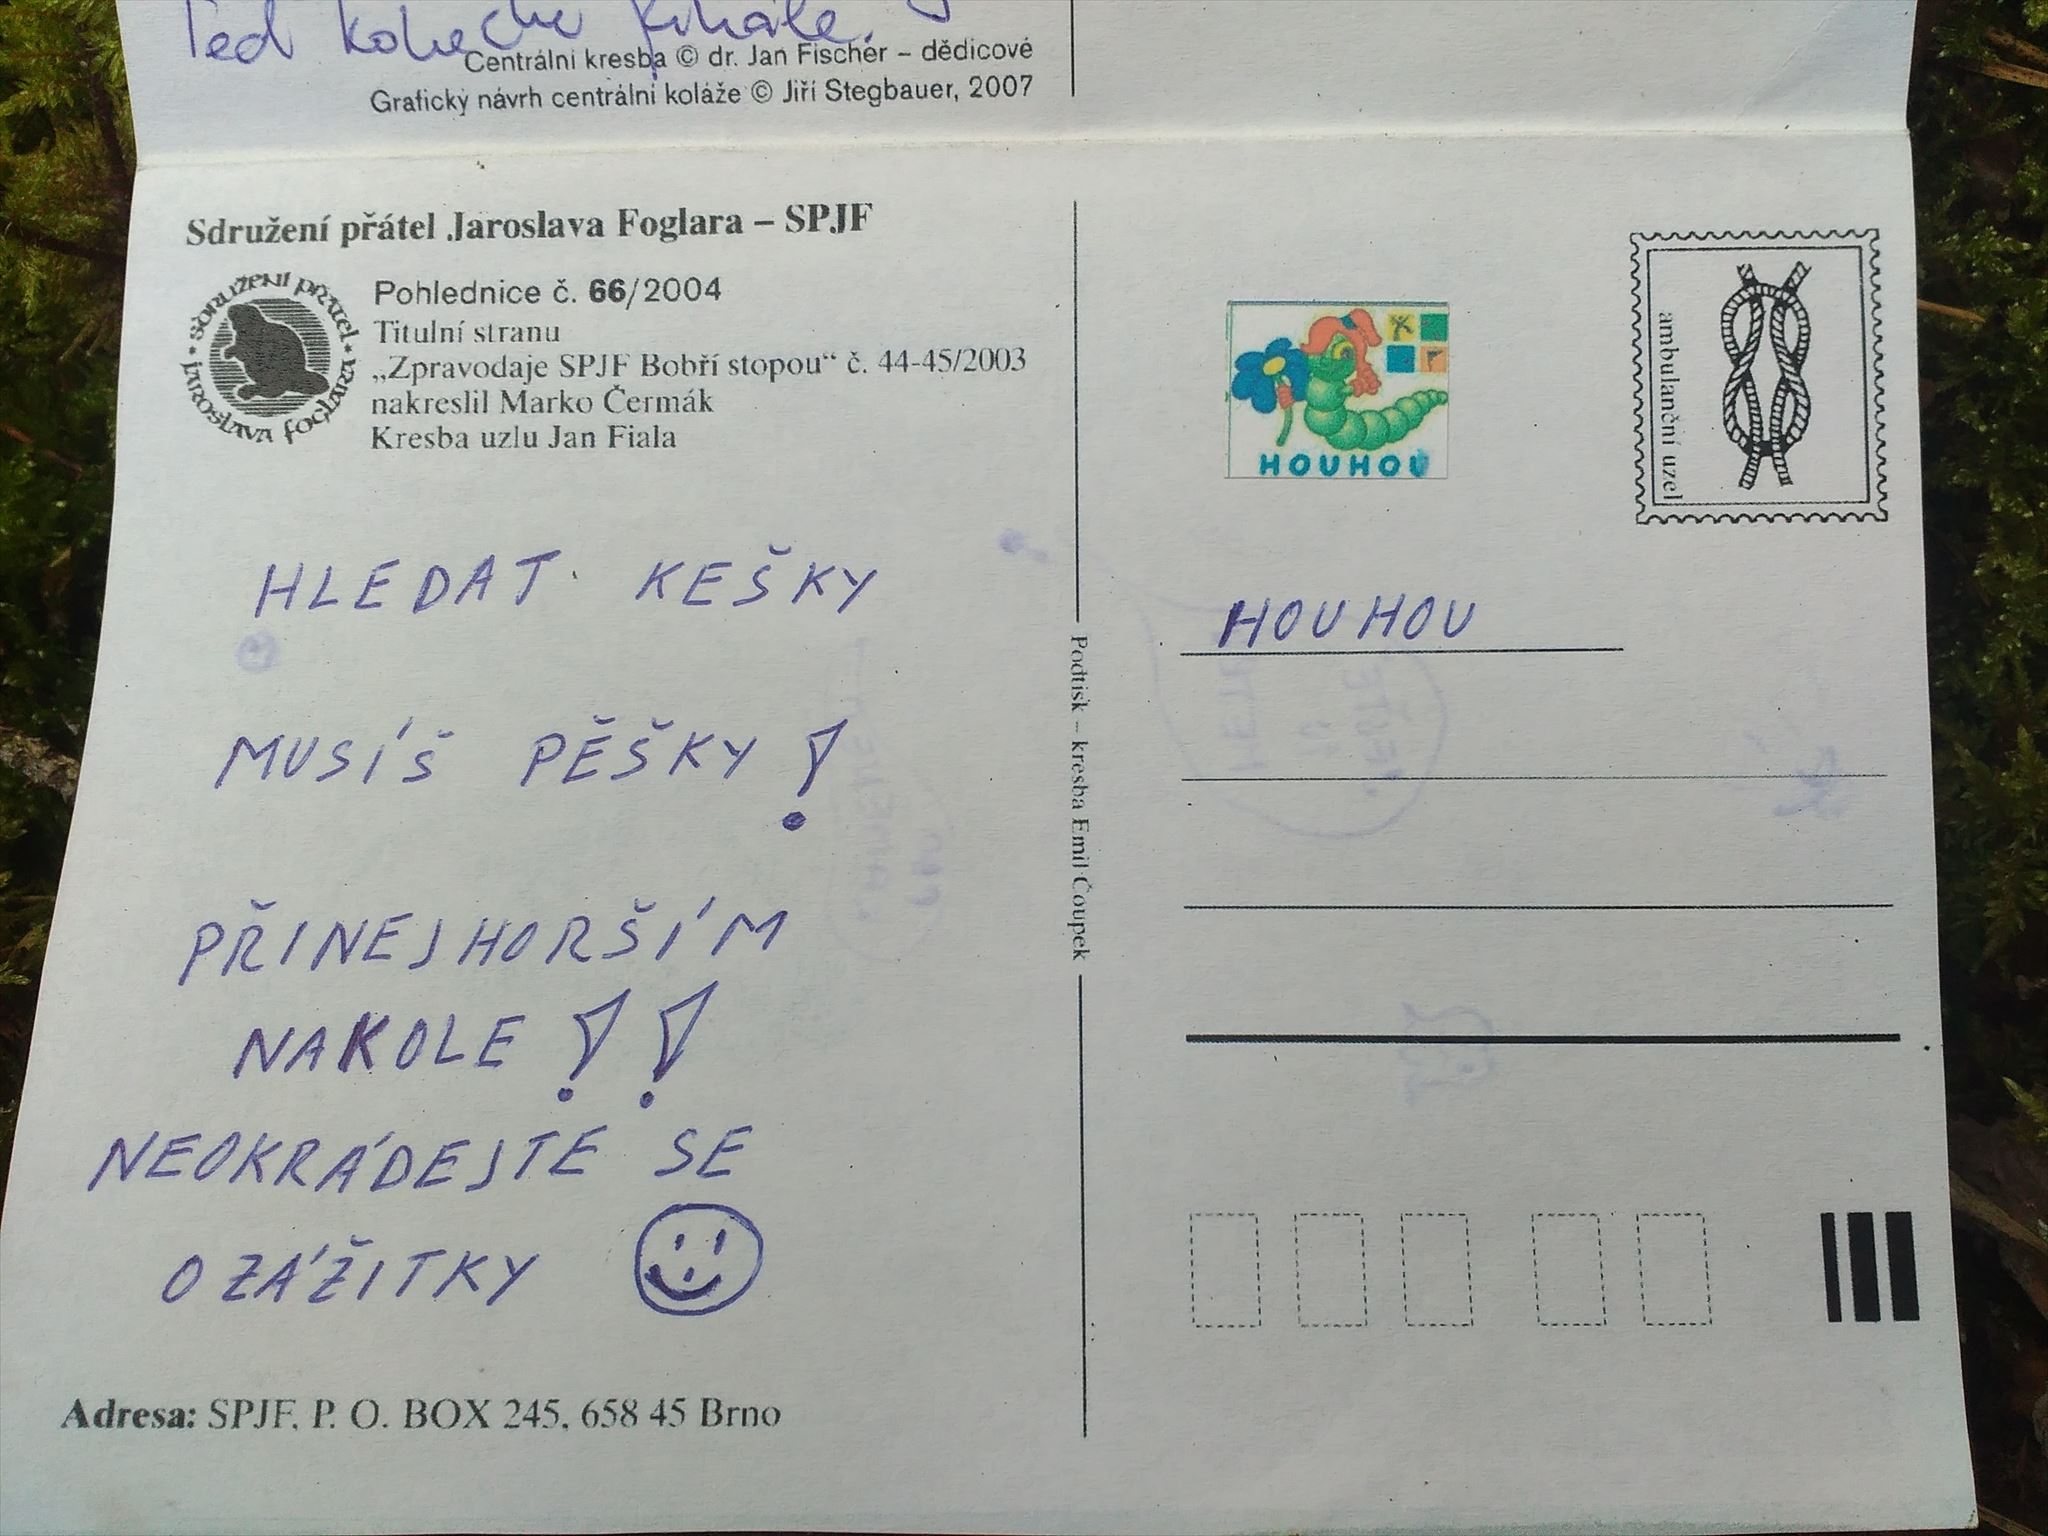 Centrální kresba © dr. Jan Fischer – dědicové
Grafický návrh centrální koláže © Jiří Stegbauer, 2007
Sdružení přátel Jaroslava Foglara – SPJF
SDRUŽENÍ PŘÁTEL • JAROSLAVA FOGLARA •
Pohlednice č. 66/2004
Titulní stranu
„Zpravodaje SPJF Bobří stopou“ č. 44-45/2003
nakreslil Marko Čermák
Kresba uzlu Jan Fiala
HLEDAT KEŠKY
MUSÍŠ PĚŠKY!
PŘINEJHORŠÍM
NAKOLE!!
NEOKRÁDEJTE SE
O ZÁŽITKY
Adresa: SPJF, P. O. BOX 245, 658 45 Brno
Podtisk – kresba Emil Čoupek
HOUHOU
ambulanční uzel
HOUHOU